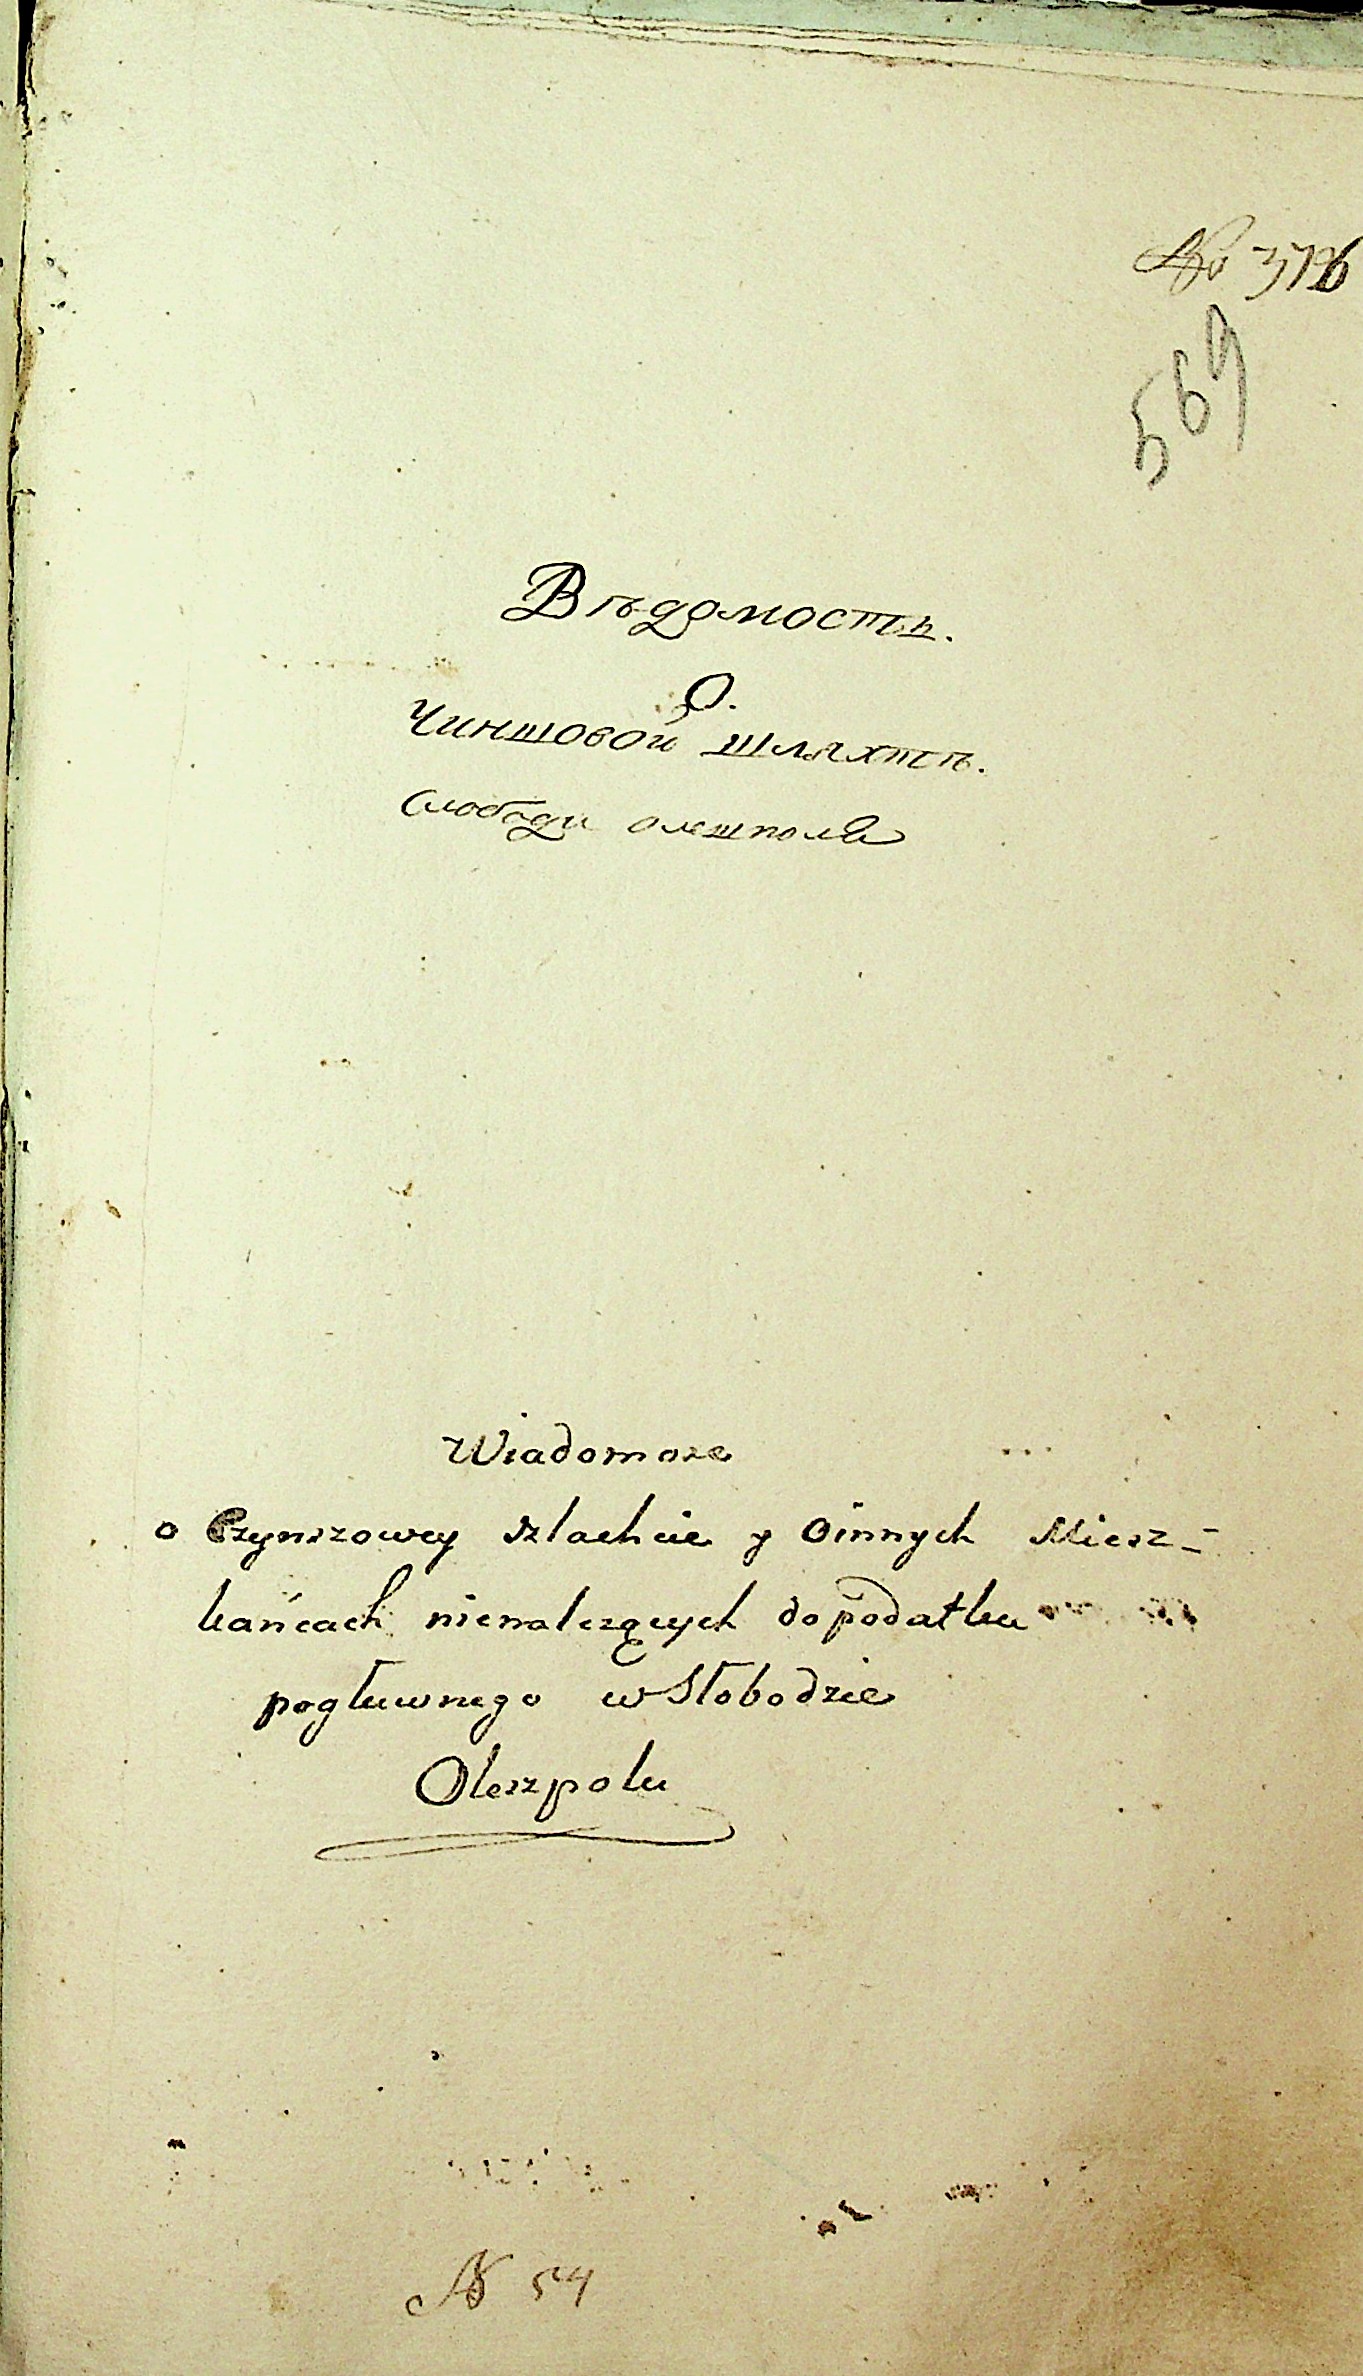 № 3726
569
Вѣдомость.
О.
Чиншовой шляхтѣ.
Слободи олешполя
Wiadomość
o Czynszowey szlachcie y o innych Miesz-
kańcach nienależących do podatku
pogłuwnego w Słobodzie
Oleszpolu
№ 54